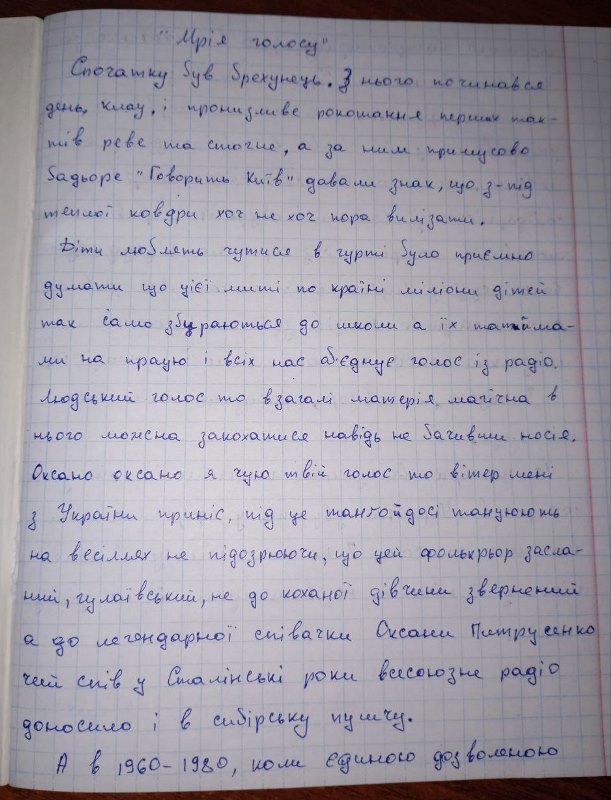 "Мрія голосу"
Спочатку був брехунець. З нього починався
день, клац, і пронизливе рокотання перших так-
тів реве та стогне, а за ним примусово
бадьоре "Говорить Київ" давали знак, що з-під
теплої ковдри хоч не хоч пора вилізати.
Діти люблять чутися в гурті було приємно
думати що цієї миті по країні міліони дітей
так само збираються до школи а їх тати й ма-
ми на працю і всіх нас об'єднує голос із радіо.
Людський голос то взагалі матерія магічна в
нього можна закохатися навідь не бачивши носія.
Оксано оксано я чую твій голос то вітер мені
з України приніс, під це танго й досі танцюють
на весіллях не підозрюючи, що цей фолькрьор засла-
ний, гулаївський, не до коханої дівчини звернений
а до легендарної співачки Оксани Питрусенко
чий спів у Сталінські роки всесоюзне радіо
доносило і в сибірську пущу.
А в 1960-1980, коли єдиною дозволеною